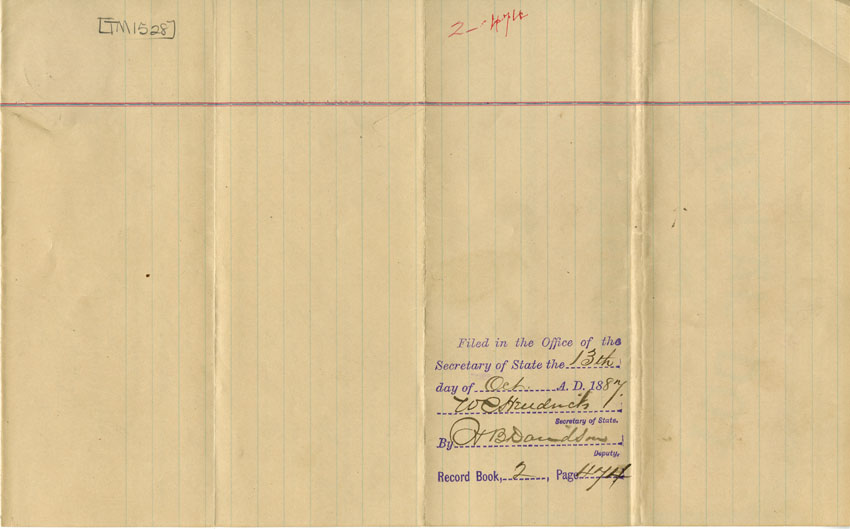 [TM1528]
2-474
Filed in the Office of the
Secretary of State the 13th
day of Oct A. D. 1887
W C Hendricks
Secretary of State.
By H B Davidson
Deputy,
Record Book, 2, Page 474